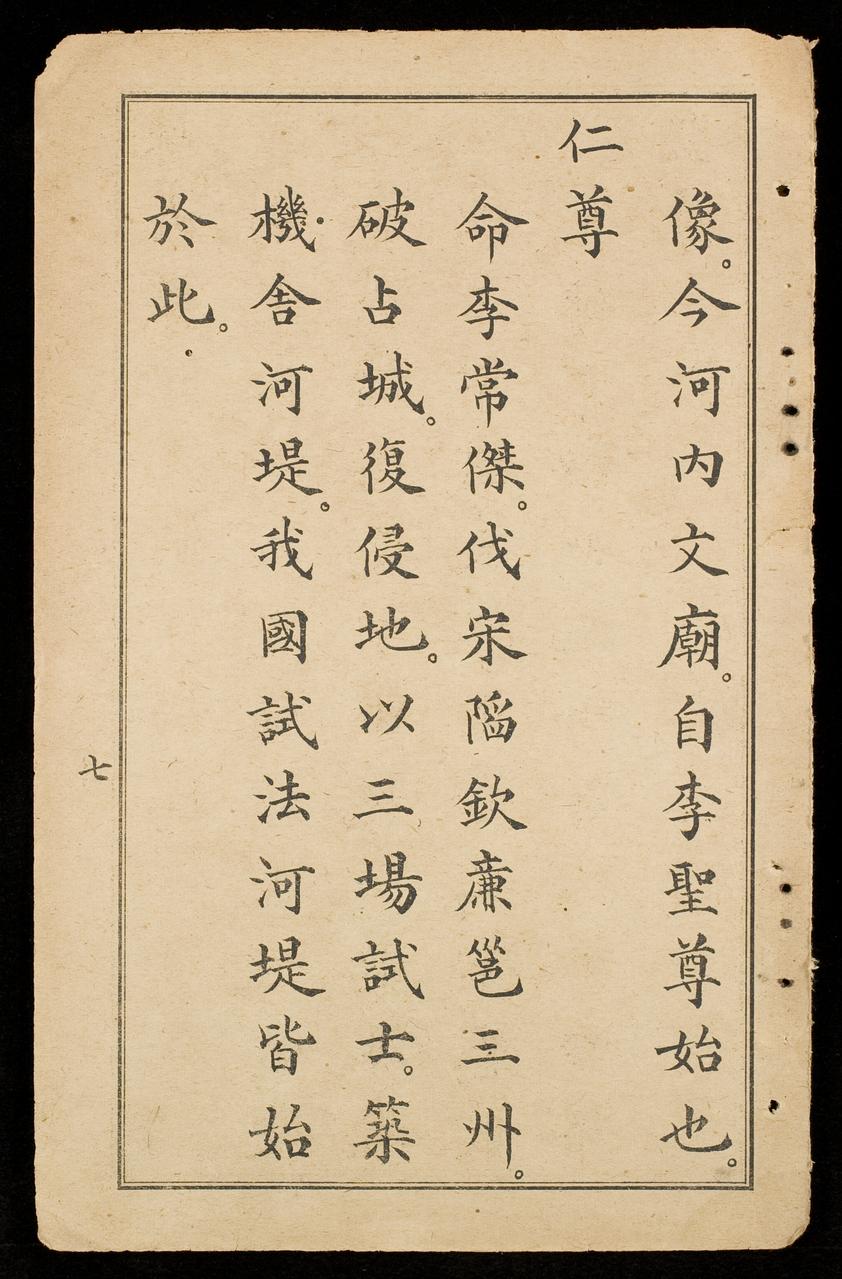 像。今河内文廟。自李聖尊始也。
仁尊
命李常傑。伐宋陷欽廉邕三州。
破占城。復侵地。以三場試士。築
機舍河堤。我國試法河堤皆始
於此。
七